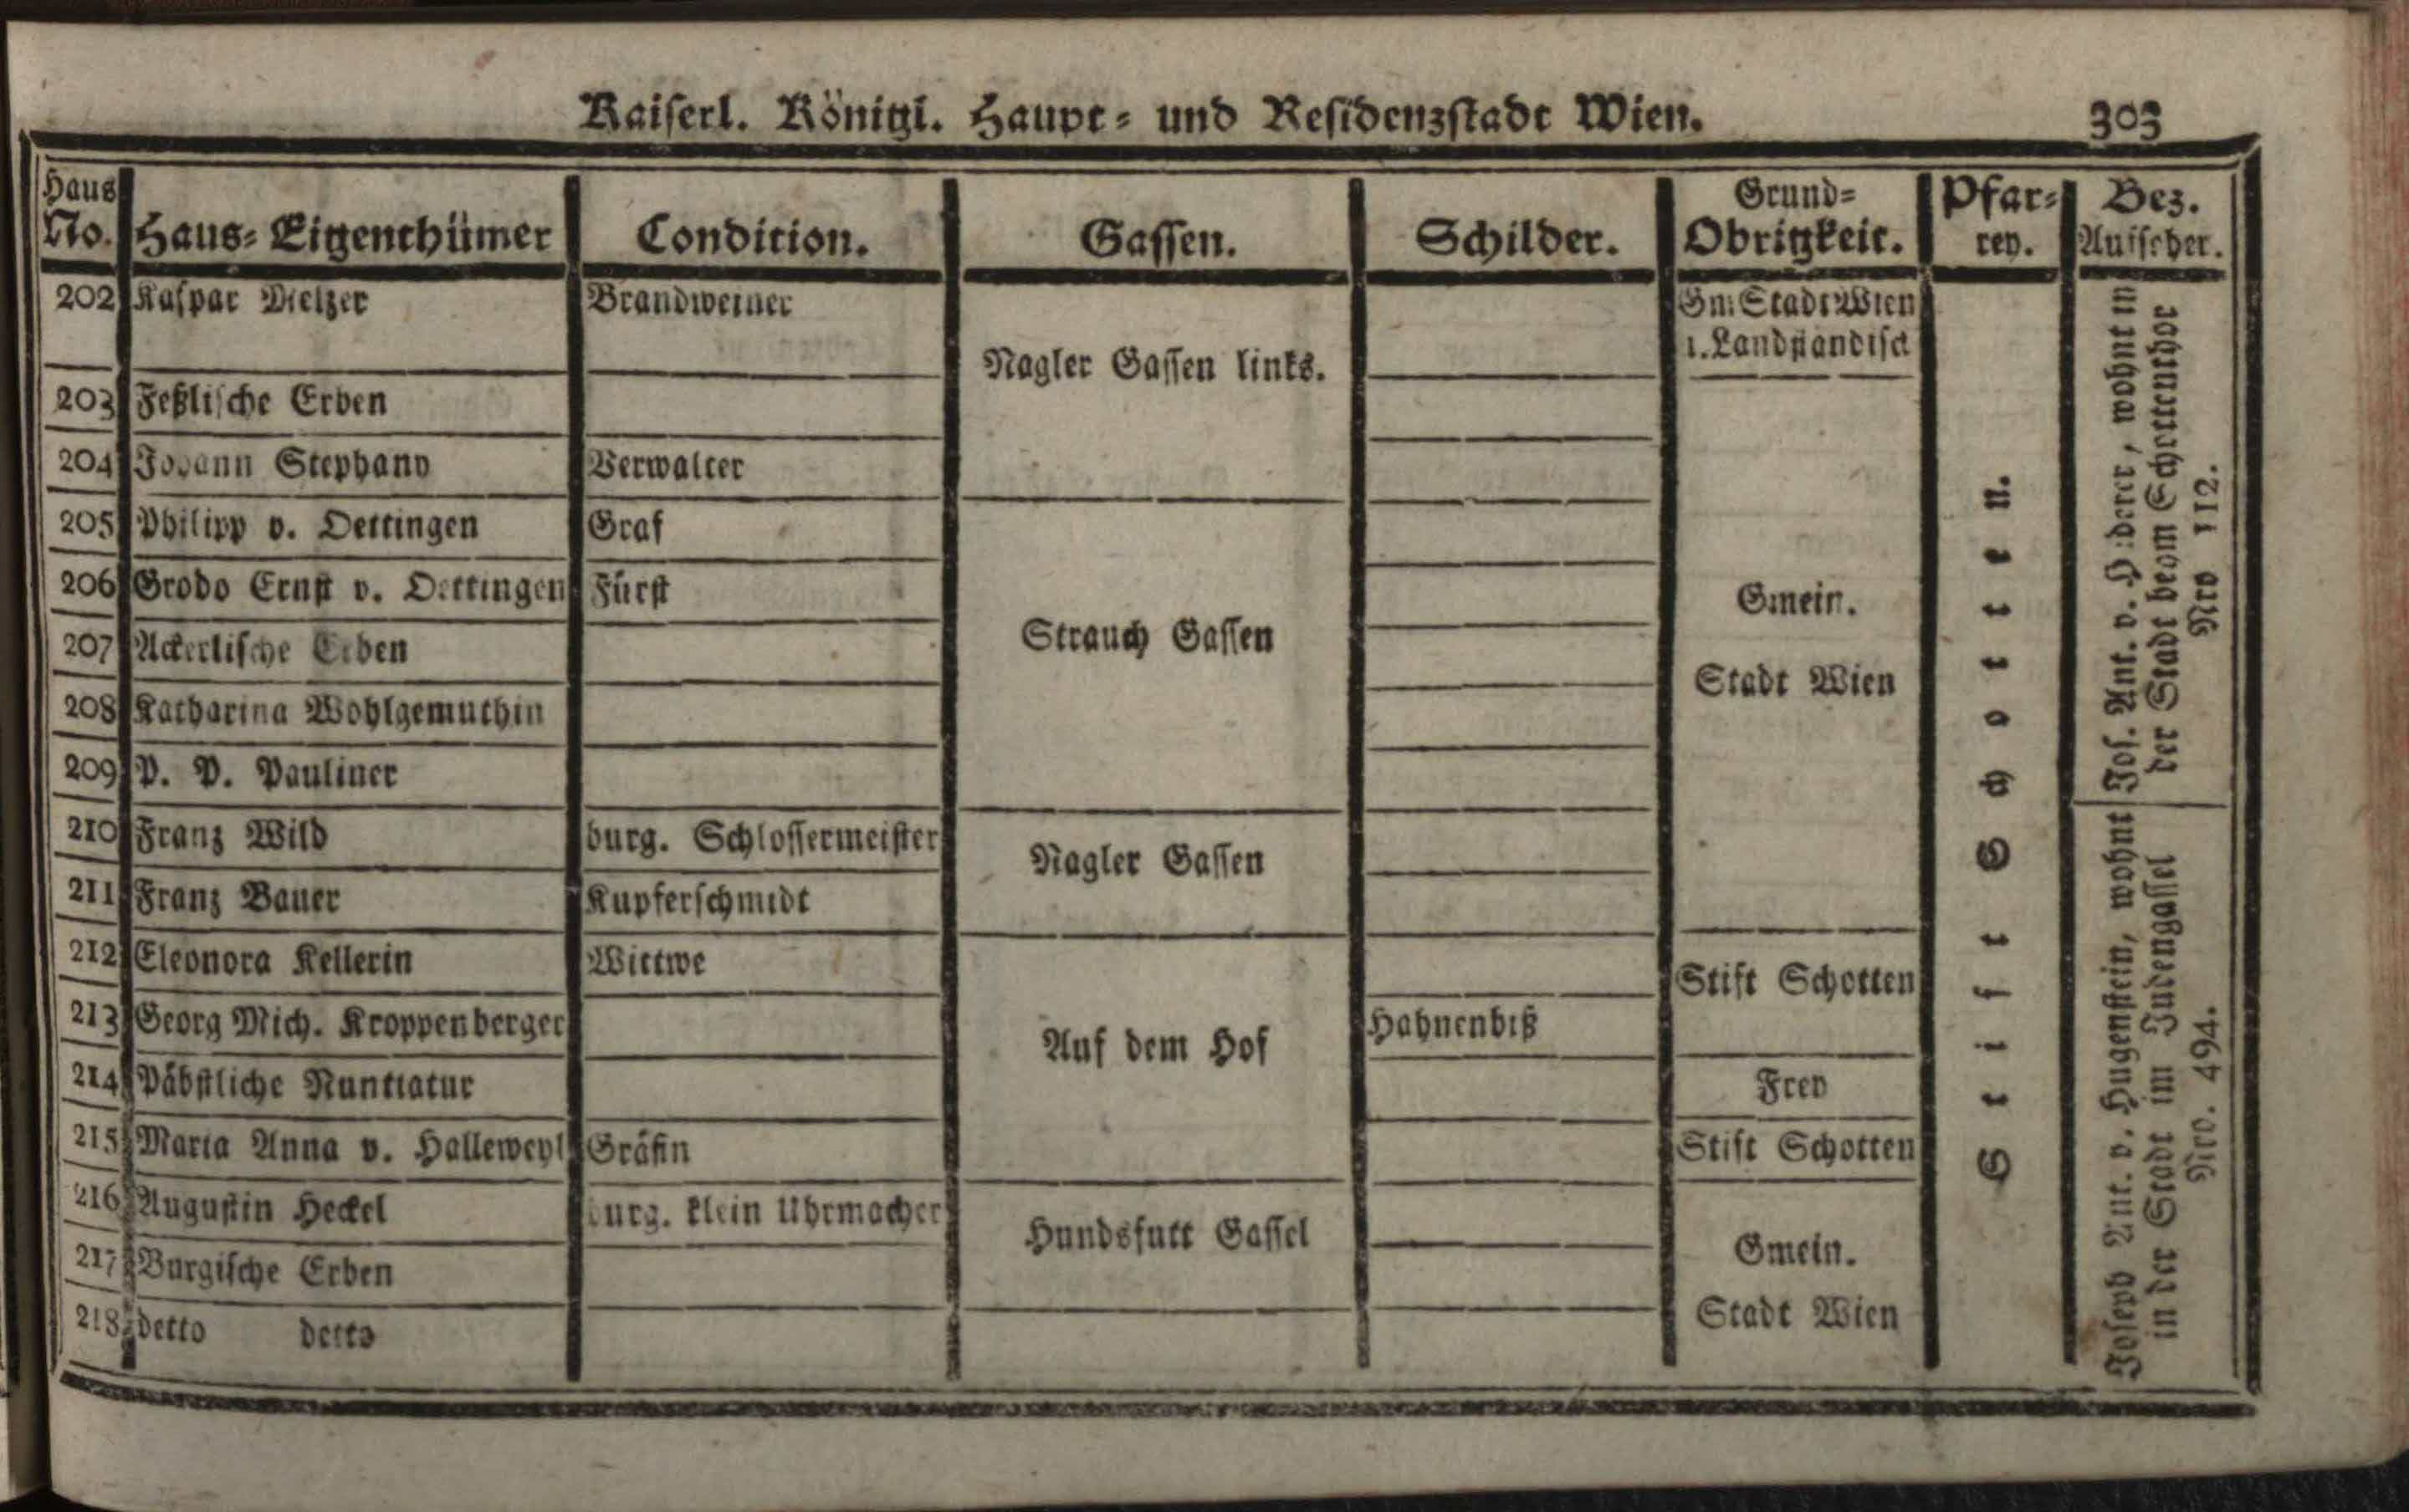 Kaiserl. Königl. Haupt- und Residenzstadt Wien. 303
Haus No. Haus-Eigenthümer Condition. Gassen. Schilder. Grund-Obrigkeit. Pfar-rey. Bez. Aufseher.
202 Kaspar Melzer Brandweiner Gm. Stadt Wien
Nagler Gassen links. u. Landständisch
203 Feßlische Erben
204 Johann Stephany Verwalter
205 Philipp v. Oettingen Graf
206 Grodo Ernst v. Oettingen Fürst Gmein.
207 Ackerlische Erben Strauch Gassen
Stadt Wien
208 Katharina Wohlgemuthin
209 P. P. Pauliner
210 Franz Wild burg. Schlossermeister
Nagler Gassen
211 Franz Bauer Kupferschmidt
212 Eleonora Kellerin Wittwe Stift Schotten
213 Georg Mich. Kroppenberger Hahnenbiß
Auf dem Hof
214 Päbstliche Nuntiatur Frey
215 Maria Anna v. Halleweyl Gräfin Stift Schotten
216 Augustin Heckel burg. klein Uhrmacher
Hundsfutt Gassel Gmein.
217 Burgische Erben
218 detto detto Stadt Wien
Stift Schotten.
Jos. Ant. v. , wohnt in
der Stadt beym Schottenthor
Nro 112.
Joseph Ant. v. Hugenstein, wohnt
in der Stadt im Judengassel
Nro. 494.